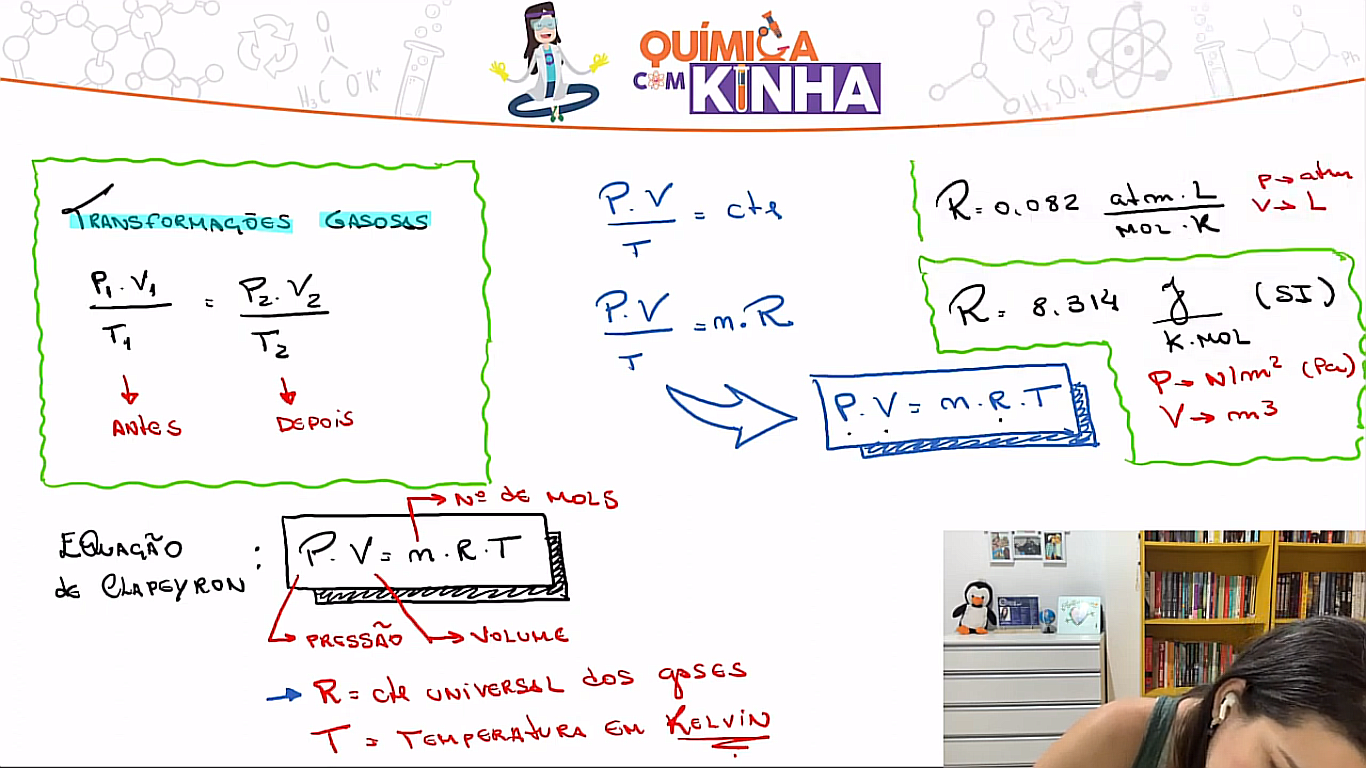 QUÍMICA
COM KINHA
H₃C O⁻K⁺
H₂SO₄
Ph
TRANSFORMAÇÕES GASOSAS
P₁.V₁/T₁ = P₂.V₂/T₂
ANTES
DEPOIS
P.V/T = cte
P.V/T = n.R
P.V = n.R.T
R = 0,082 atm.L/MOL.K
P → atm
V → L
R = 8,314 J/K.MOL (SI)
P → N/m² (Pa)
V → m³
EQUAÇÃO
DE CLAPEYRON :
P.V = n.R.T
Nº DE MOLS
PRESSÃO
VOLUME
R = cte UNIVERSAL DOS GASES
T = TEMPERATURA EM KELVIN